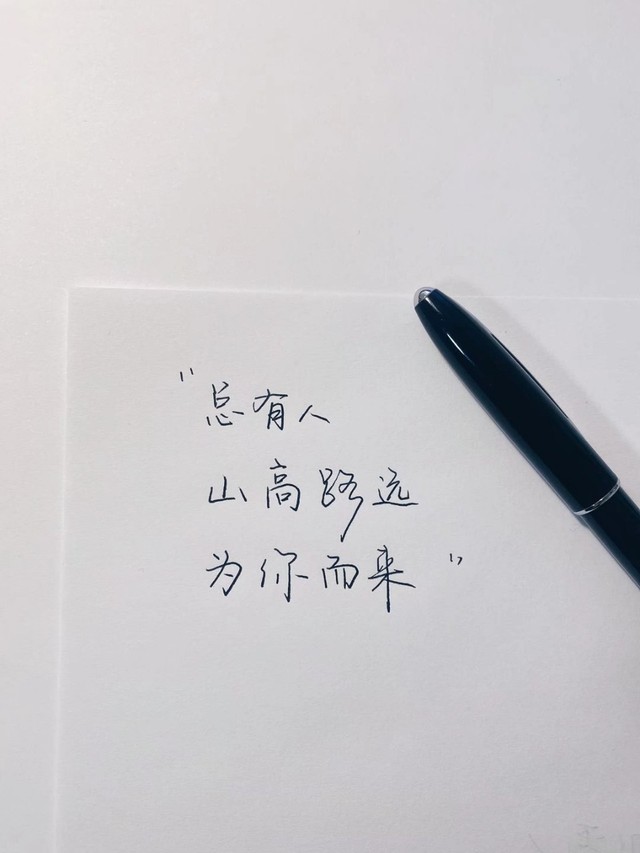 "总有人
山高路远
为你而来"